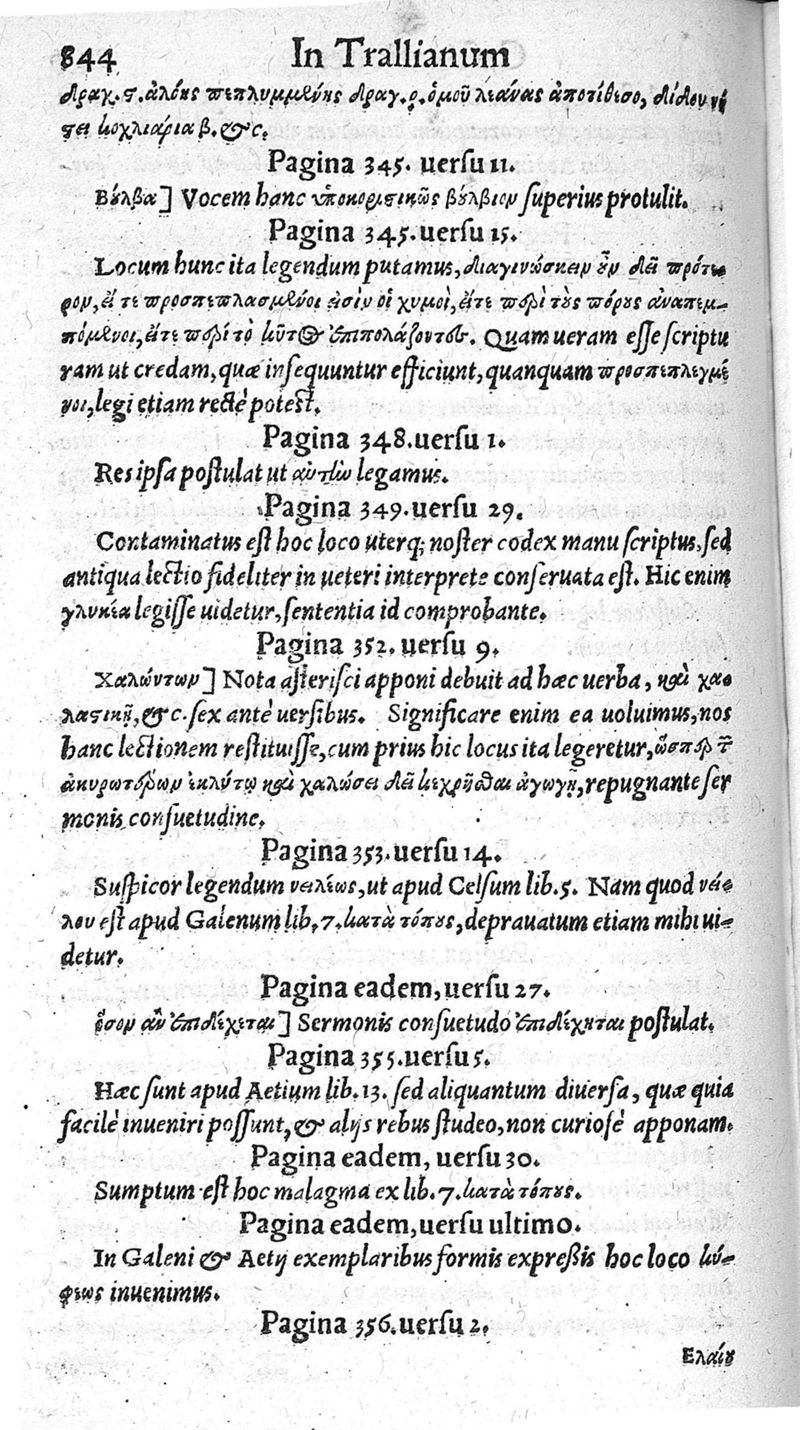 844 In Trallianum
δραχ. ϛ. ἀλόης πεπλυμμένης δραγ. ρ. ὁμοῦ λειάνας ἀποτίθεσο, δίδου νή
ϛει κοχλιάρια β. &c.
Pagina 345. uerſu 11.
Βύλβα] Vocem hanc ὑποκοριστικῶς βύλβιον ſuperius protulit.
Pagina 345. uerſu 15.
Locum hunc ita legendum putamus, διαγινώσκειν οὖν δεῖ πρότε-
ρον, εἴ τε προσπεπλασμένοι εἰσὶν οἱ χυμοὶ, εἴτε περὶ τοὺς πόρους ἀναπεμ-
πόμενοι, εἴτε περὶ τὸ κῦτος ἐπιπολάζοντες. Quam ueram eſſe ſcriptu
ram ut credam, quæ inſequuntur efficiunt, quanquam προσπεπλεγμέ
νοι, legi etiam rectè poteſt.
Pagina 348. uerſu 1.
Res ipſa poſtulat ut αὐτὴν legamus.
Pagina 349. uerſu 29.
Contaminatus eſt hoc loco uterq; noſter codex manu ſcriptus, ſed
antiqua lectio fideliter in ueteri interprete conſeruata eſt. Hic enim
γλυκία legiſſe uidetur, ſententia id comprobante.
Pagina 352. uerſu 9.
Χαλώντων] Nota aſteriſci apponi debuit ad hæc uerba, καὶ χα-
λαστικῇ, &c. ſex antè uerſibus. Significare enim ea uoluimus, nos
hanc lectionem reſtituiſſe, cum prius hic locus ita legeretur, ὥσπερ τ
ἀκυρωτέρων ἐκλύτω καὶ χαλώσει δεῖ κεχρῆσθαι ἀγωγῇ, repugnante ſer
monis conſuetudine.
Pagina 353. uerſu 14.
Suſpicor legendum νειλέως, ut apud Celſum lib. 5. Nam quod νεί-
λου eſt apud Galenum lib. 7. κατὰ τόπους, deprauatum etiam mihi ui-
detur.
Pagina eadem, uerſu 27.
ὅσον ἂν ἐπιδέχεται] Sermonis conſuetudo ἐπιδέχηται poſtulat.
Pagina 355. uerſu 5.
Hæc ſunt apud Aetium lib. 13. ſed aliquantum diuerſa, quæ quia
facilè inueniri poſſunt, & alijs rebus ſtudeo, non curioſè apponam.
Pagina eadem, uerſu 30.
Sumptum eſt hoc malagma ex lib. 7. κατὰ τόπους.
Pagina eadem, uerſu ultimo.
In Galeni & Aetij exemplaribus formis expreßis hoc loco κύ-
φεως inuenimus.
Pagina 356. uerſu 2.
Ελαίου